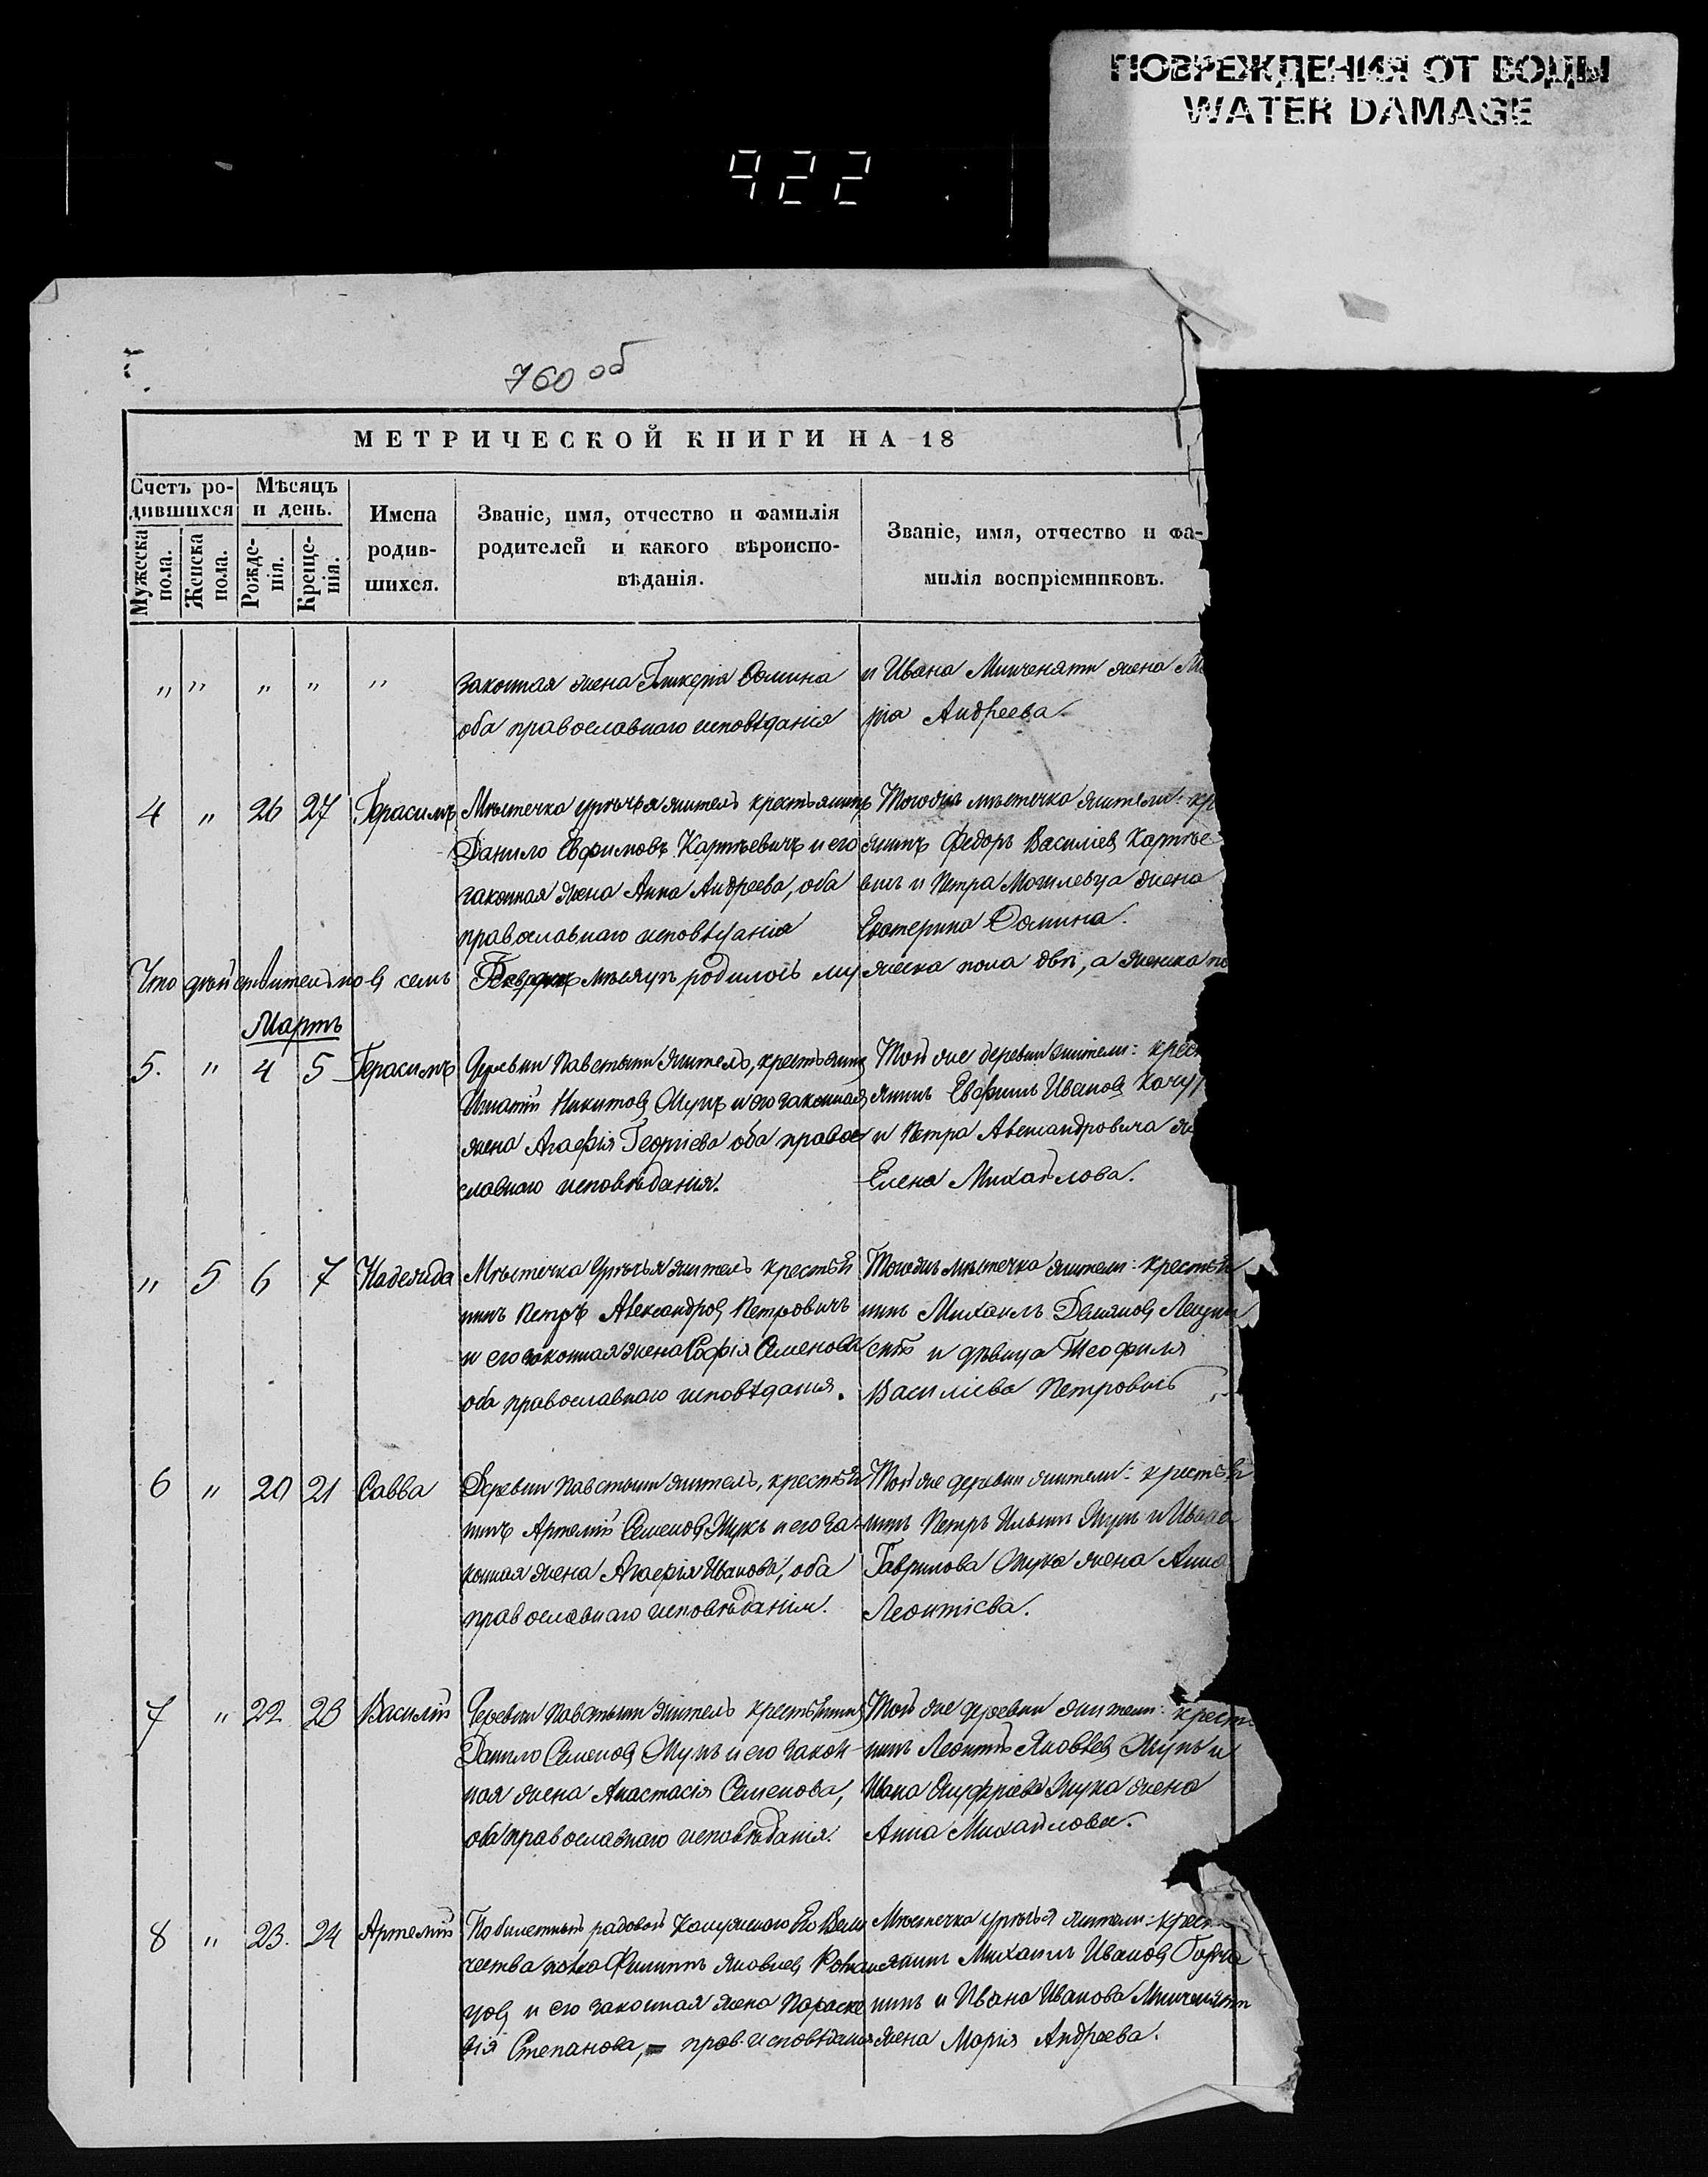 ПОВРЕЖДЕНИЯ ОТ ВОДЫ
WATER DAMAGE
922
760 об
МЕТРИЧЕСКОЙ КНИГИ НА 18
Счетъ ро-
дившихся
Мѣсяцъ
и день.
Мужеска
пола.
Женска
пола.
Рожде-
нія.
Креще-
нія.
Имена
родив-
шихся.
Званіе, имя, отчество и фамилія
родителей и какого вѣроиспо-
вѣданія.
Званіе, имя, отчество и фа-
милія воспріемниковъ.
" " " " "
законная жена Гликерія Фомина
оба православнаго исповѣданія
и Ивана Минченяти жена Ма
рія Андреева.
4 " 26 27 Герасимъ
Мѣстечка Урѣчья житель крестьянинъ
Данило Евфимовъ Картьевичъ и его
законная жена Анна Андреева, оба
православнаго исповѣданія
Тогожъ мѣстечка жители: кр
янинъ Федоръ Василіевъ Картье
вичъ и Петра жена
Екатерина Фомина.
Что дѣйствительно въ семъ Февралѣ мѣсяцѣ родилось мужеска пола два, а женска по
Мартъ
5. " 4 5 Герасимъ
Деревни Павстыни житель, крестьянинъ
Игнатій Никитовъ Жукъ и его законная
жена Агафія Георгіева оба право-
славнаго исповѣданія.
Той же деревни жители: крест
янинъ Евфимъ Ивановъ
и Петра Александровича ж
Елена Михайлова.
" 5 6 7 Надежда
Мѣстечка Урѣчья житель крестья
нинъ Петръ Александровъ Петровичъ
и его законная жена Софія Семенова
оба православнаго исповѣданія.
Тогожъ мѣстечка жители: крестья
нинъ Михаилъ Демяновъ
и дѣвица Теофиля
Василіева Петровичъ
6 " 20 21 Савва
Деревни Павстыни житель, крестья
нинъ Артемій Семеновъ Жукъ и его за-
конная жена Агафія Иванова, оба
православнаго исповѣданія.
Той же деревни жители: крестья
нинъ Петръ Ильинъ Жукъ и Ивана
Гаврилова Жука жена Анна
Леонтіева.
7 " 22 23 Василій
Деревни Павстыни житель крестьянинъ
Данило Семеновъ Жукъ и его закон-
ная жена Анастасія Семенова,
оба православнаго исповѣданія.
Той же деревни жители: крестья
нинъ Леонтій Яковлевъ Жукъ и
Ивана Онуфріева Жука жена
Анна Михайлова.
8 " 23. 24 Артемій
По билетный рядовой Калужского Его Вели
чества полка Филиппъ Яковлевъ Роман
цовъ и его законная жена Параске
вія Степанова, – прав. исповѣданія
Мѣстечка Урѣчья жители: крест
янинъ Михаилъ Ивановъ
нинъ и Ивана Иванова Минченяти
жена Марія Андреева.